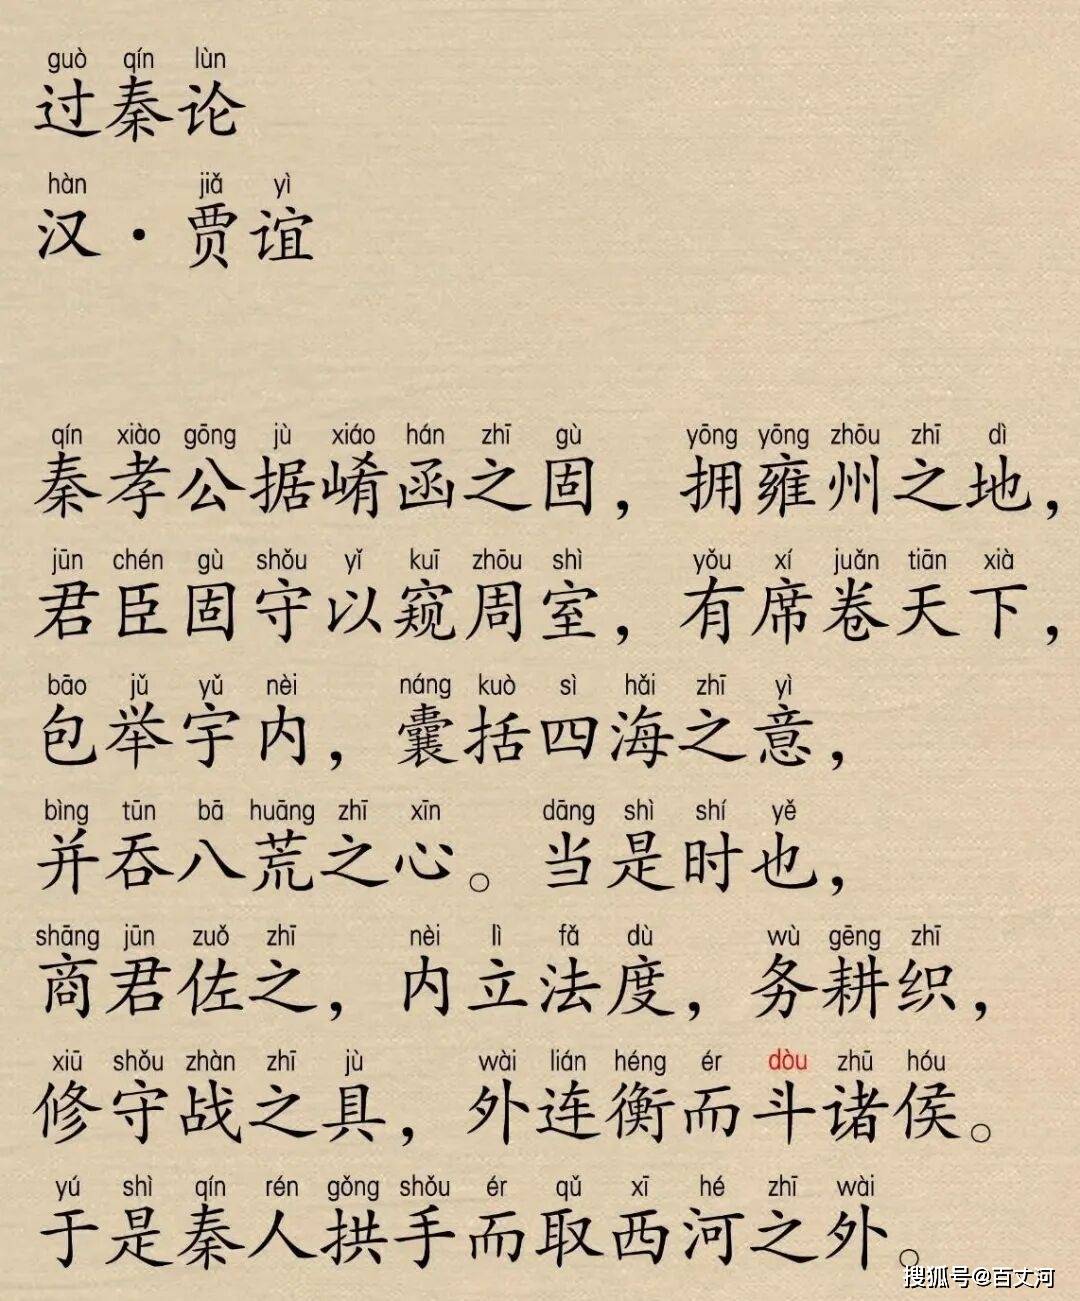 guò qín lùn
过秦论
hàn jiǎ yì
汉·贾谊
qín xiào gōng jù xiáo hán zhī gù yōng yōng zhōu zhī dì
秦孝公据崤函之固，拥雍州之地，
jūn chén gù shǒu yǐ kuī zhōu shì yǒu xí juǎn tiān xià
君臣固守以窥周室，有席卷天下，
bāo jǔ yǔ nèi náng kuò sì hǎi zhī yì
包举宇内，囊括四海之意，
bìng tūn bā huāng zhī xīn dāng shì shí yě
并吞八荒之心。当是时也，
shāng jūn zuǒ zhī nèi lì fǎ dù wù gēng zhī
商君佐之，内立法度，务耕织，
xiū shǒu zhàn zhī jù wài lián héng ér dòu zhū hóu
修守战之具，外连衡而斗诸侯。
yú shì qín rén gǒng shǒu ér qǔ xī hé zhī wài
于是秦人拱手而取西河之外。
搜狐号@百丈河